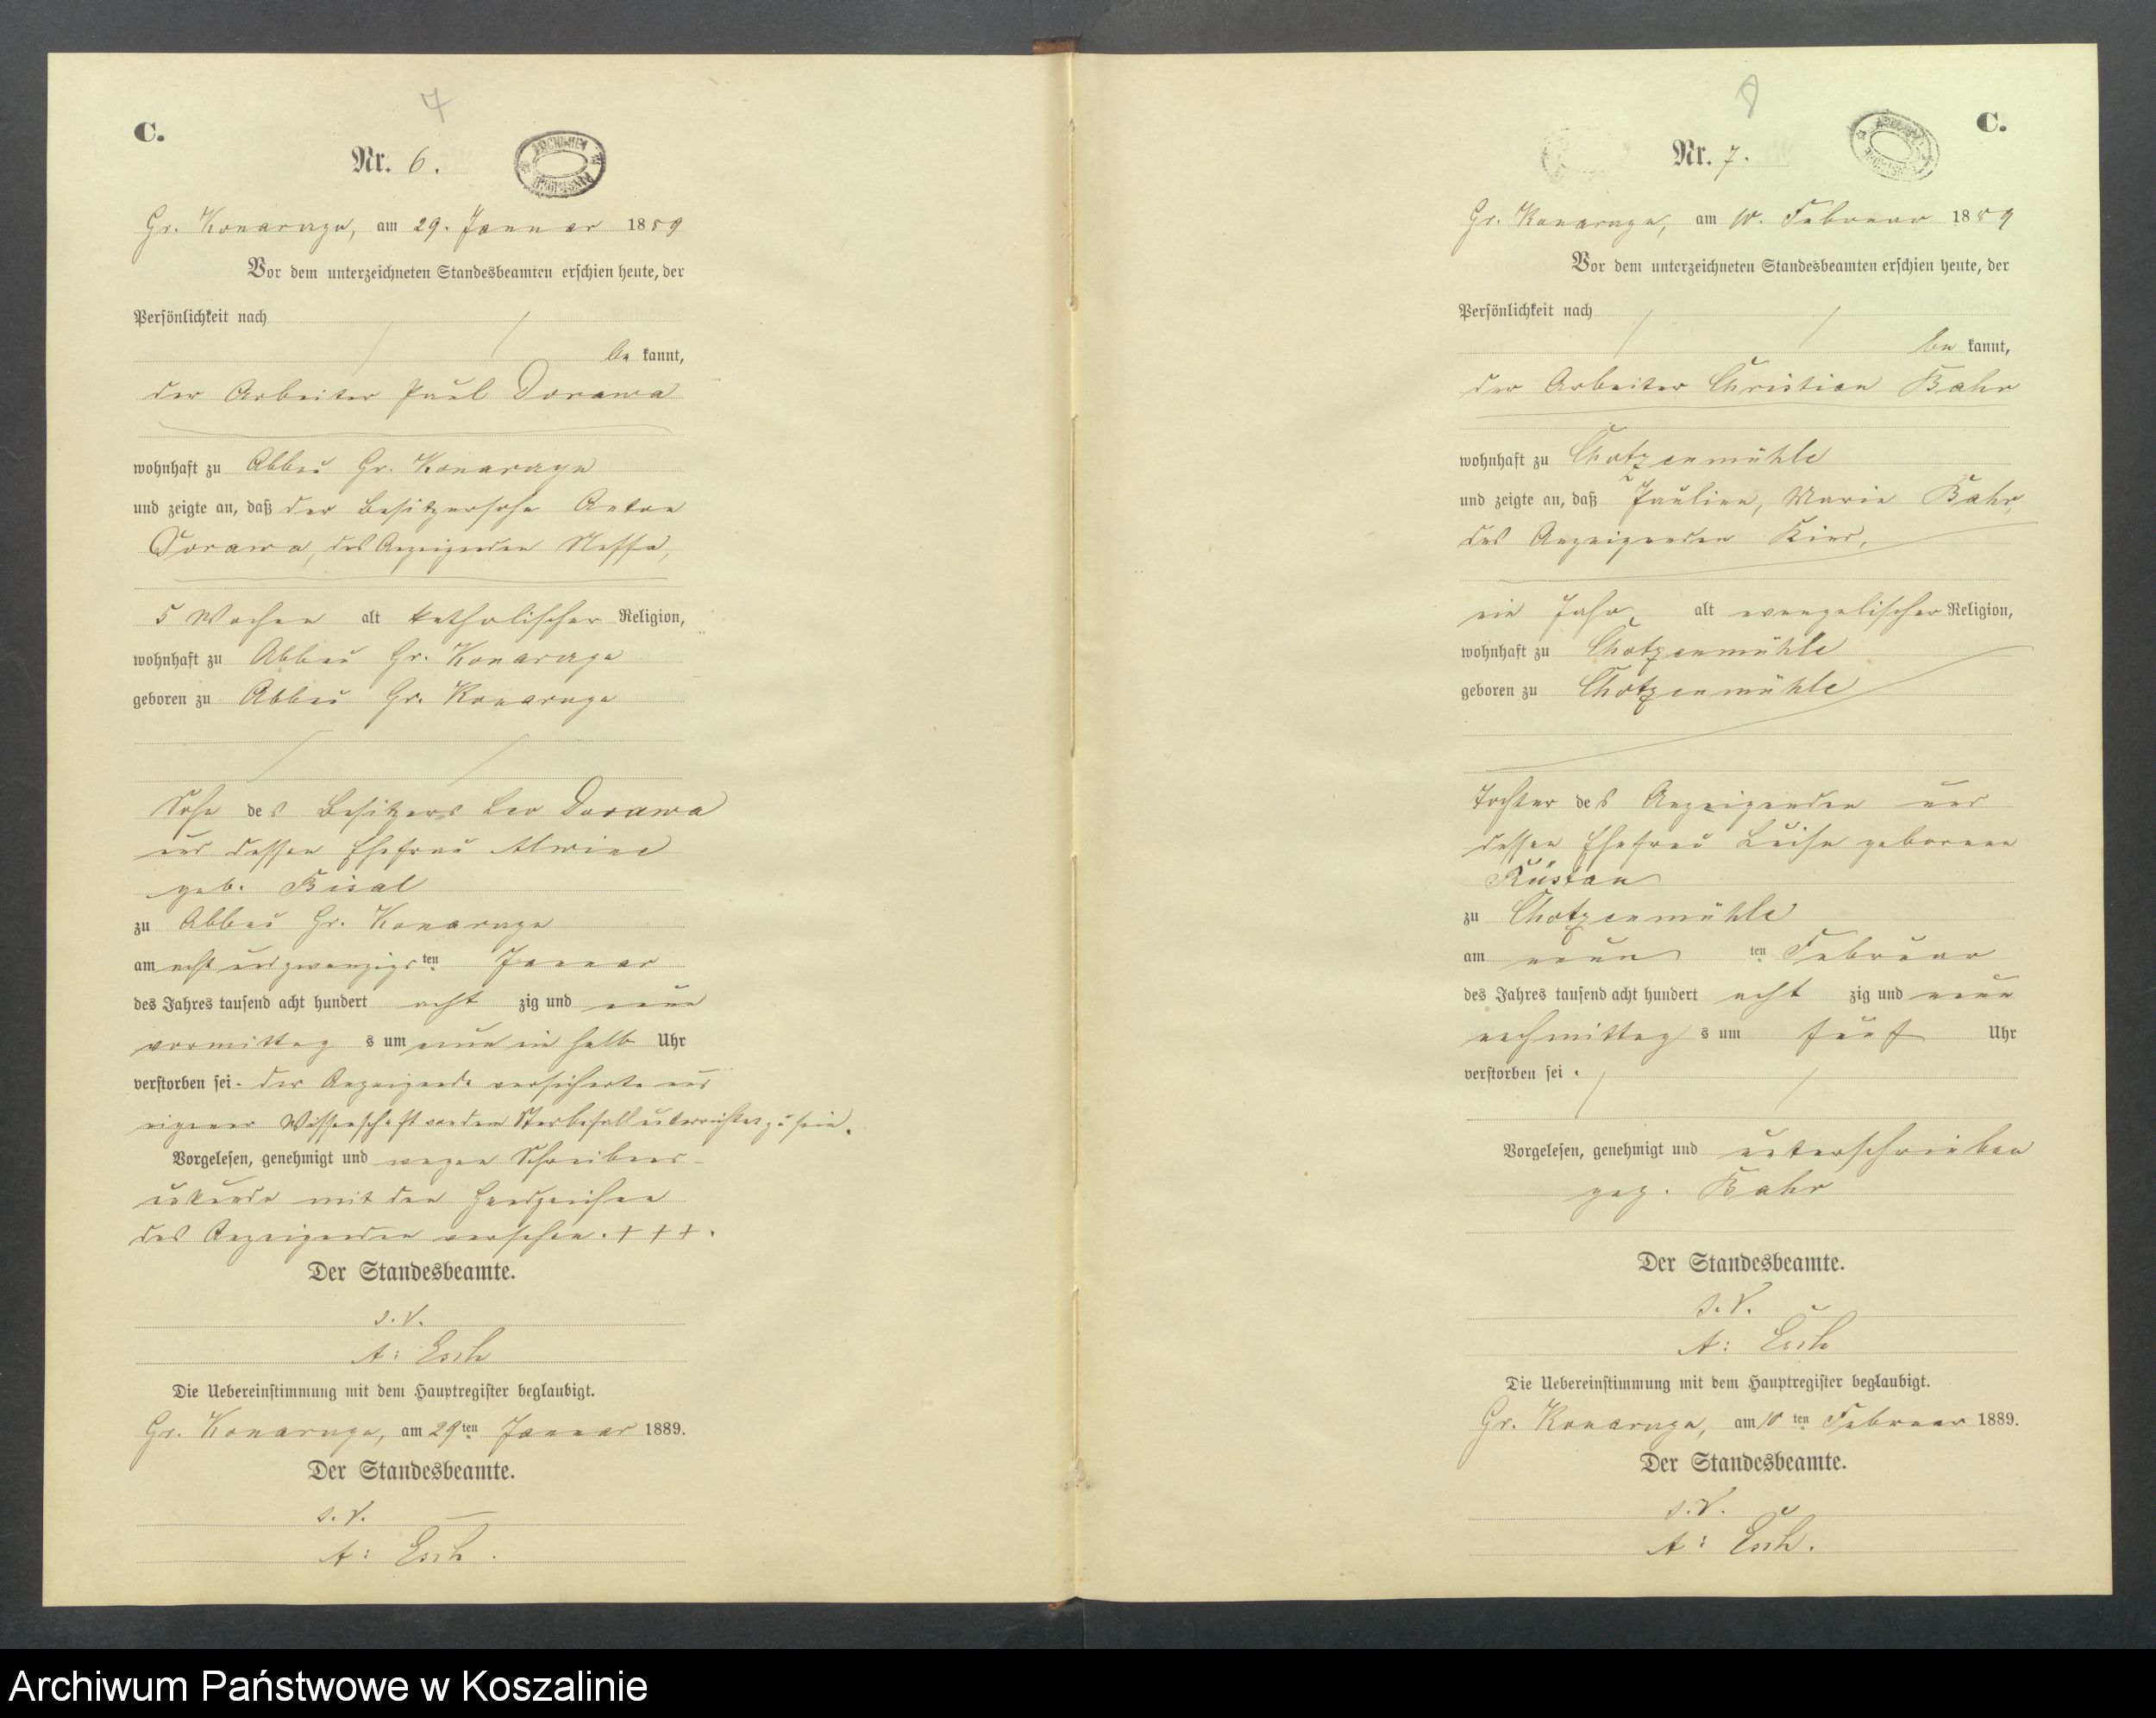 7
C.
Nr. 6.
Gr. Konarczyn, am 29. Januar 1889
Vor dem unterzeichneten Standesbeamten erschien heute, der
Persönlichkeit nach
be kannt,
der Arbeiter Paul Dorawa
wohnhaft zu Abbau Gr. Konarczyn
und zeigte an, daß der Besitzersohn Anton
Dorawa, des Anzeigenden Neffe,
5 Wochen alt katholischer Religion,
wohnhaft zu Abbau Gr. Konarczyn
geboren zu Abbau Gr. Konarczyn
Sohn des Besitzers Leo Dorawa
und dessen Ehefrau Alwine
geb. Bisal
zu Abbau Gr. Konarczyn
am acht und zwanzigsten Januar
des Jahres tausend acht hundert acht zig und neun
vormittags um neun ein halb Uhr
verstorben sei. Der Anzeigende versicherte aus
eigener Wissenschaft von dem Sterbefall unterrichtet zu sein.
Vorgelesen, genehmigt und wegen Schreibens-
unkunde mit den Handzeichen
des Anzeigenden versehen. + + +.
Der Standesbeamte.
A: Esch
Die Uebereinstimmung mit dem Hauptregister beglaubigt.
Gr. Konarczyn, am 29ten Januar 1889.
Der Standesbeamte.
A: Esch.
8
C.
Nr. 7.
Gr. Konarczyn, am 10. Februar 1889
Vor dem unterzeichneten Standesbeamten erschien heute, der
Persönlichkeit nach
be kannt,
der Arbeiter Christian Bahr
wohnhaft zu Chotzenmühle
und zeigte an, daß Pauline, Marie Bahr,
des Anzeigenden Kind,
ein Jahr alt evangelischer Religion,
wohnhaft zu Chotzenmühle
geboren zu Chotzenmühle
Tochter des Anzeigenden und
dessen Ehefrau Luise geborenen
Rüstan
zu Chotzenmühle
am neun ten Februar
des Jahres tausend acht hundert acht zig und neun
nachmittags um fünf Uhr
verstorben sei.
Vorgelesen, genehmigt und unterschrieben
gez. Bahr
Der Standesbeamte.
A: Esch
Die Uebereinstimmung mit dem Hauptregister beglaubigt.
Gr. Konarczyn, am 10ten Februar 1889.
Der Standesbeamte.
A: Esch.
Archiwum Państwowe w Koszalinie